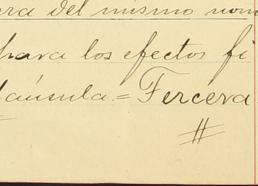 ra del mismo nom
para los efectos fi
láusula.= Tercera
#